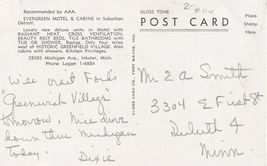 Recommended by AAA.
EVERGREEN MOTEL & CABINS in Suburban Detroit.
Locally new deluxe units in Motel with
RADIANT HEAT, CROSS VENTILATION,
BEAUTY REST BEDS, TILE BATHROOMS with
TUB OR SHOWER, Radios. Only four miles
west of HISTORIC GREENFIELD VILLAGE. Also
cabins with shower. Kitchen Privileges.
28505 Michigan Ave., Inkster, Mich.
Phone Logan 1-6884
GLOSS TONE
POST CARD
GLOBE CARD CO., FORT WAYNE, IND.
Will visit Ford's
"Greenwich Village"
tomorrow. Nice drive
down thru Michigan
today.
Dixie
Mr. 2 A Smith
3304 E First St
Duluth 4
Minn